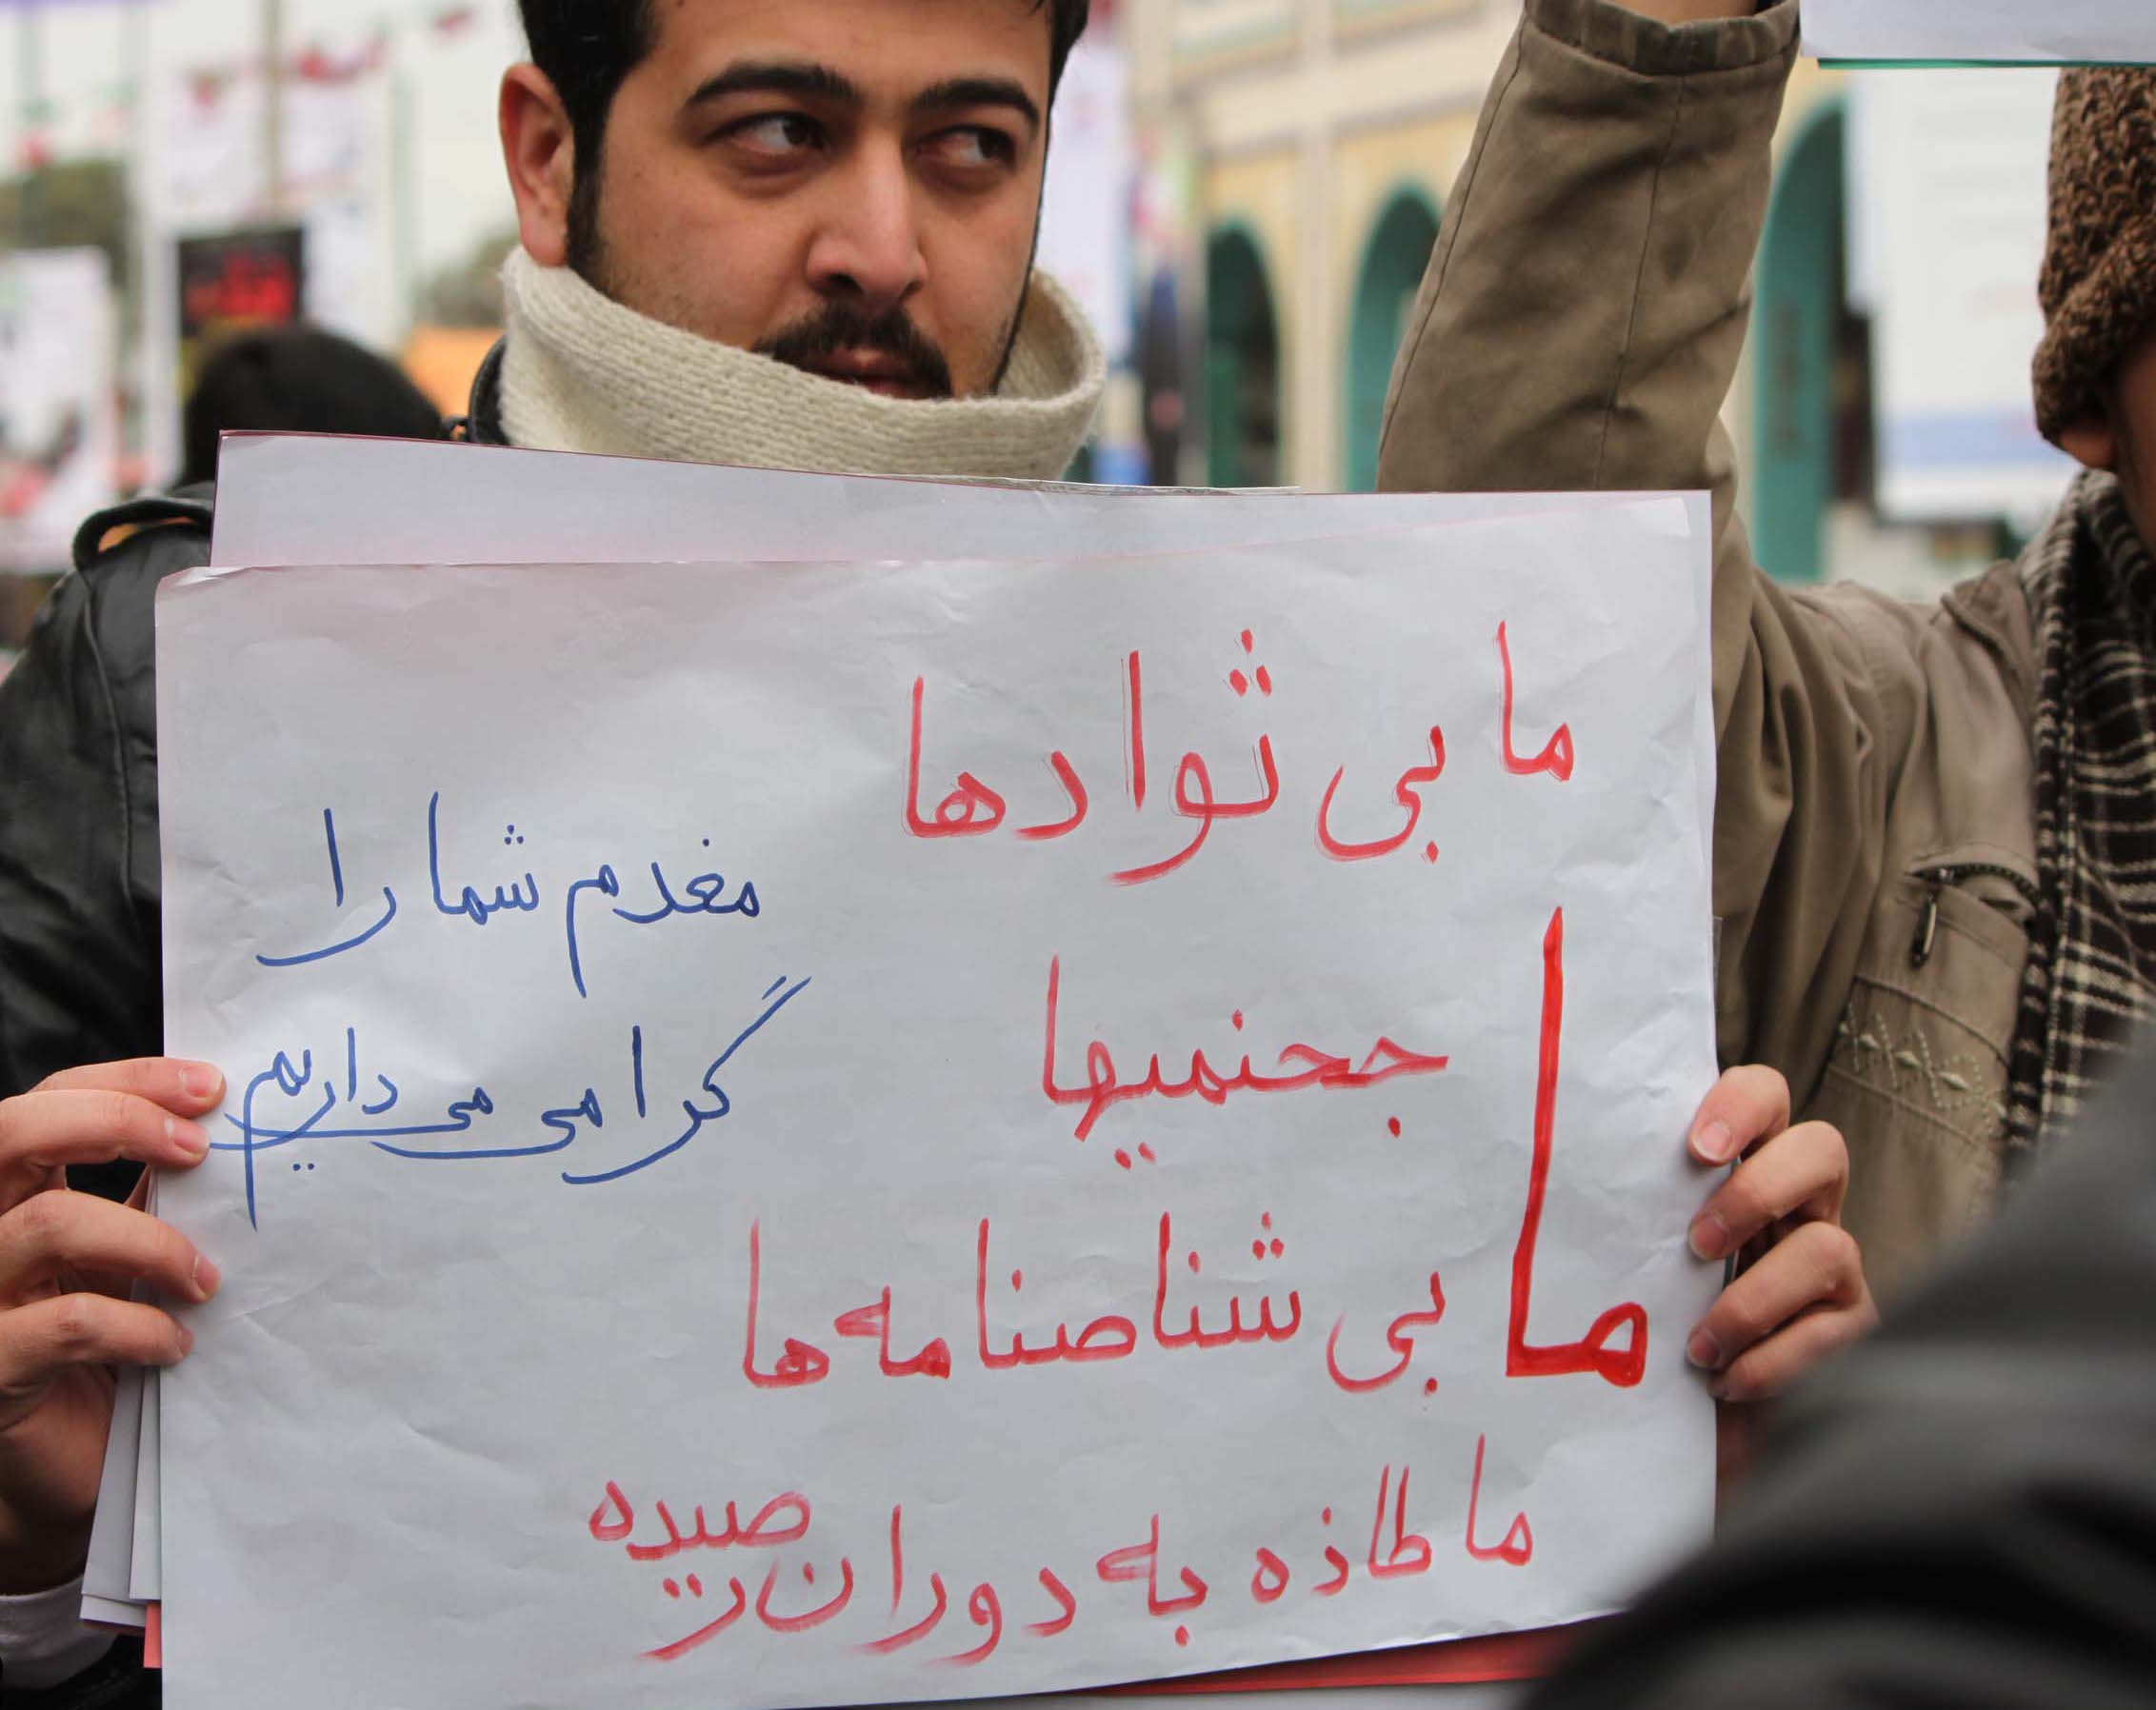 ما بی ثوادها
جحنمیها
ما بی شناصنامه ها
ما طاذه به دوران رصیده
مغدم شما را
گرامی می داریم